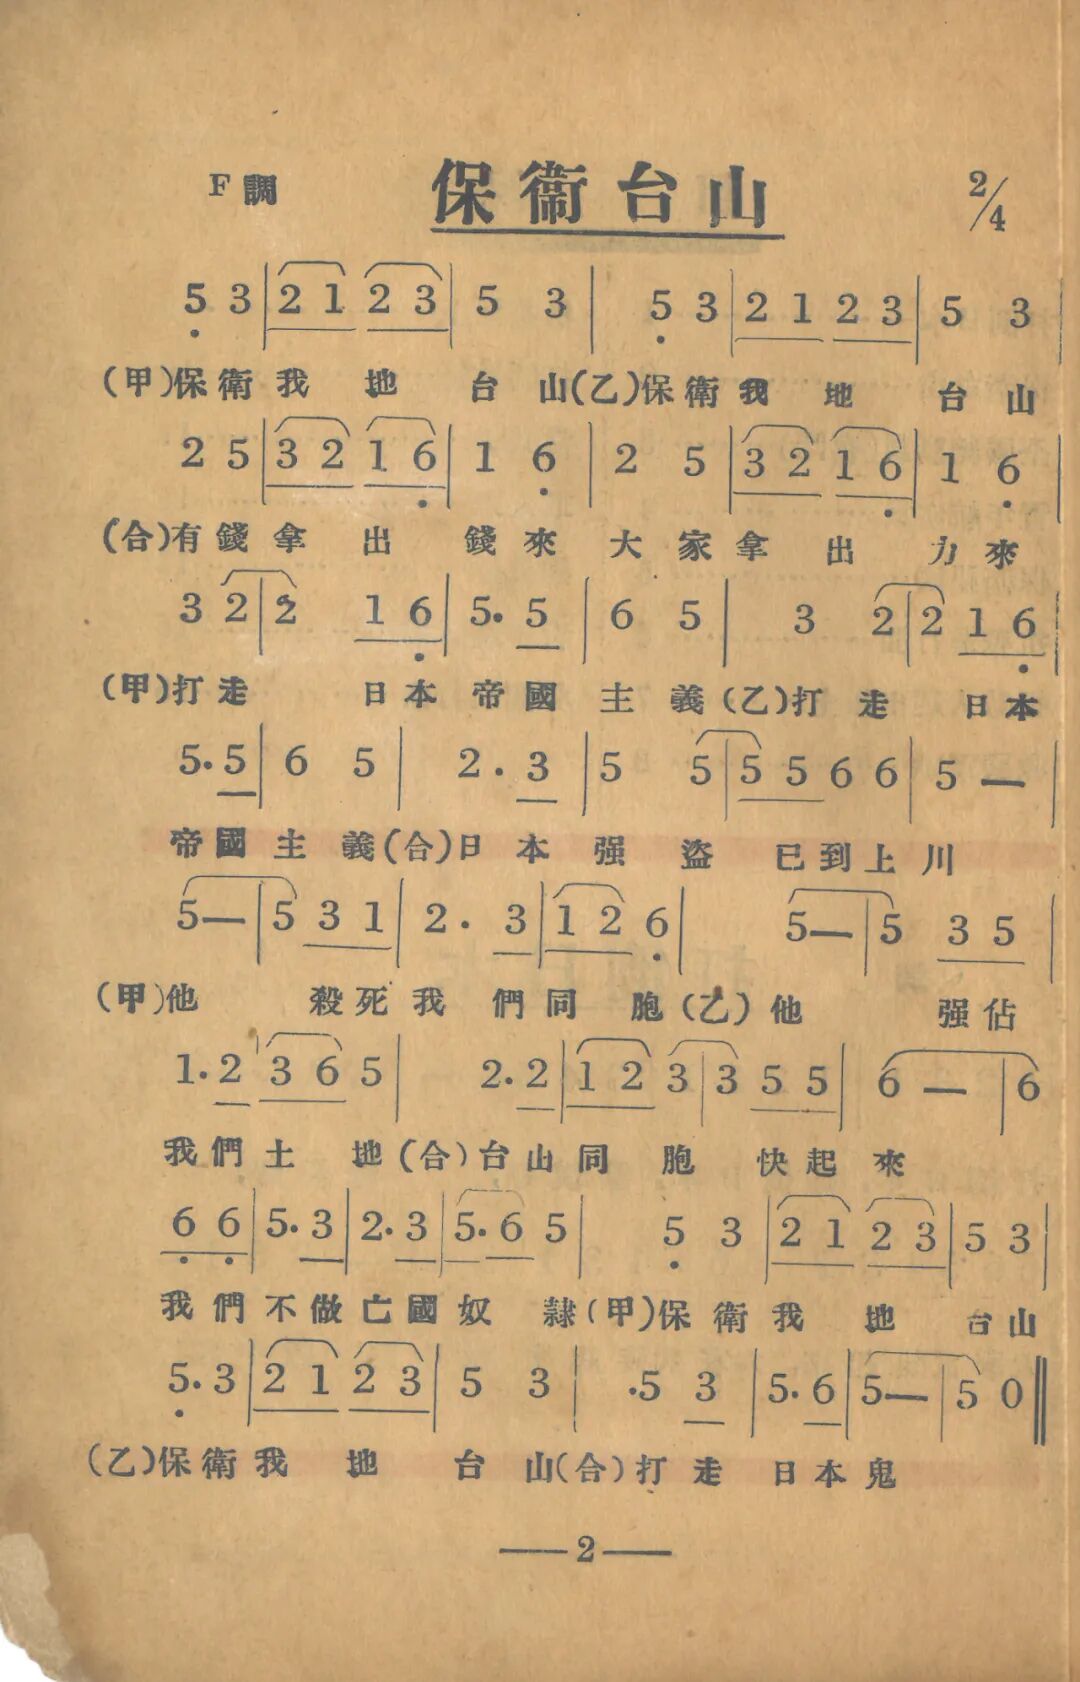 F調 保衞台山 2/4
5 3 | 2 1 2 3 | 5 3 | 5 3 | 2 1 2 3 | 5 3 |
(甲)保衛我地台山(乙)保衛我地台山
2 5 | 3 2 1 6 | 1 6 | 2 5 | 3 2 1 6 | 1 6 |
(合)有錢拿出錢來大家拿出力來
3 2 | 2 1 6 | 5. 5 | 6 5 | 3 2 | 2 1 6 |
(甲)打走日本帝國主義(乙)打走日本
5. 5 | 6 5 | 2. 3 | 5 5 | 5 5 6 6 | 5 — |
帝國主義(合)日本强盜已到上川
5 — | 5 3 1 | 2. 3 | 1 2 6 | 5 — | 5 3 5 |
(甲)他殺死我們同胞(乙)他强佔
1. 2 | 3 6 5 | 2. 2 | 1 2 3 | 3 5 5 | 6 — | 6
我們土地(合)台山同胞快起來
6 6 | 5. 3 | 2. 3 | 5. 6 5 | 5 3 | 2 1 2 3 | 5 3 |
我們不做亡國奴隸(甲)保衛我地台山
5. 3 | 2 1 2 3 | 5 3 | .5 3 | 5. 6 | 5 — | 5 0 ‖
(乙)保衛我地台山(合)打走日本鬼
—2—